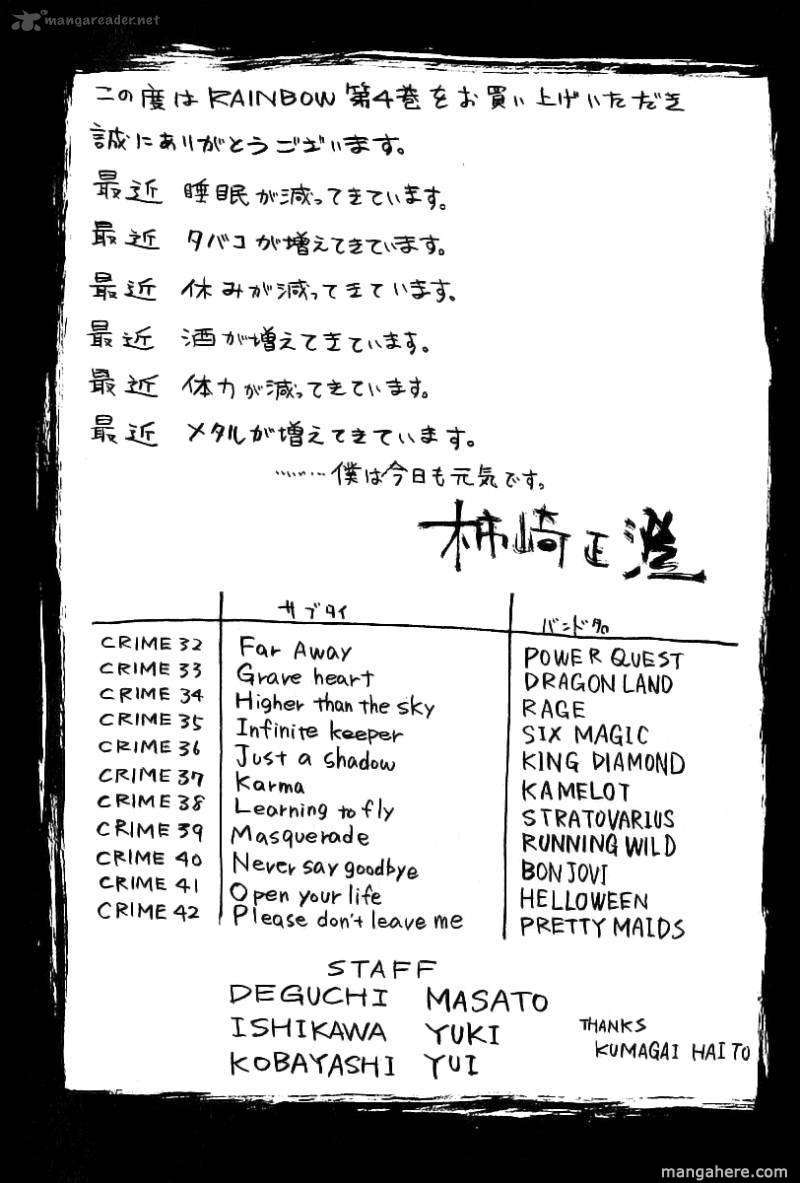 mangareader.net
この度は RAINBOW 第4巻をお買い上げいただき
誠にありがとうございます。
最近 睡眠が減ってきています。
最近 タバコが増えてきています。
最近 休みが減ってきています。
最近 酒が増えてきています。
最近 体力が減ってきています。
最近 メタルが増えてきています。
………僕は今日も元気です。
柿崎正澄
サブタイ バンド名
CRIME 32 Far Away POWER QUEST
CRIME 33 Grave heart DRAGON LAND
CRIME 34 Higher than the sky RAGE
CRIME 35 Infinite keeper SIX MAGIC
CRIME 36 Just a shadow KING DIAMOND
CRIME 37 Karma KAMELOT
CRIME 38 Learning to fly STRATOVARIUS
CRIME 39 Masquerade RUNNING WILD
CRIME 40 Never say goodbye BON JOVI
CRIME 41 Open your life HELLOWEEN
CRIME 42 Please don't leave me PRETTY MAIDS
STAFF
DEGUCHI MASATO
ISHIKAWA YUKI
KOBAYASHI YUI
THANKS
KUMAGAI HAITO
mangahere.com